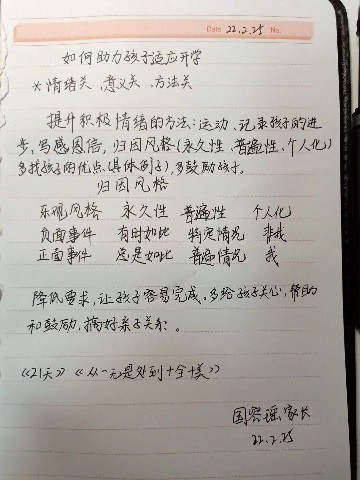 Date 22.2.25 No.
如何助力孩子适应开学
*情绪关、意义关、方法关
提升积极情绪的方法：运动、记录孩子的进
步，写感恩信，归因风格(永久性 普遍性，个人化)
多找孩子的优点(具体例子)，多鼓励孩子。
归因风格
乐观风格 永久性 普遍性 个人化
负面事件 有时如此 特定情况 非我
正面事件 总是如此 普遍情况 我
降低要求，让孩子容易完成。多给孩子关心，帮助
和鼓励，搞好亲子关系。
《21天》《从一无是处到十全十美》
国容瑶家长
22.2.25